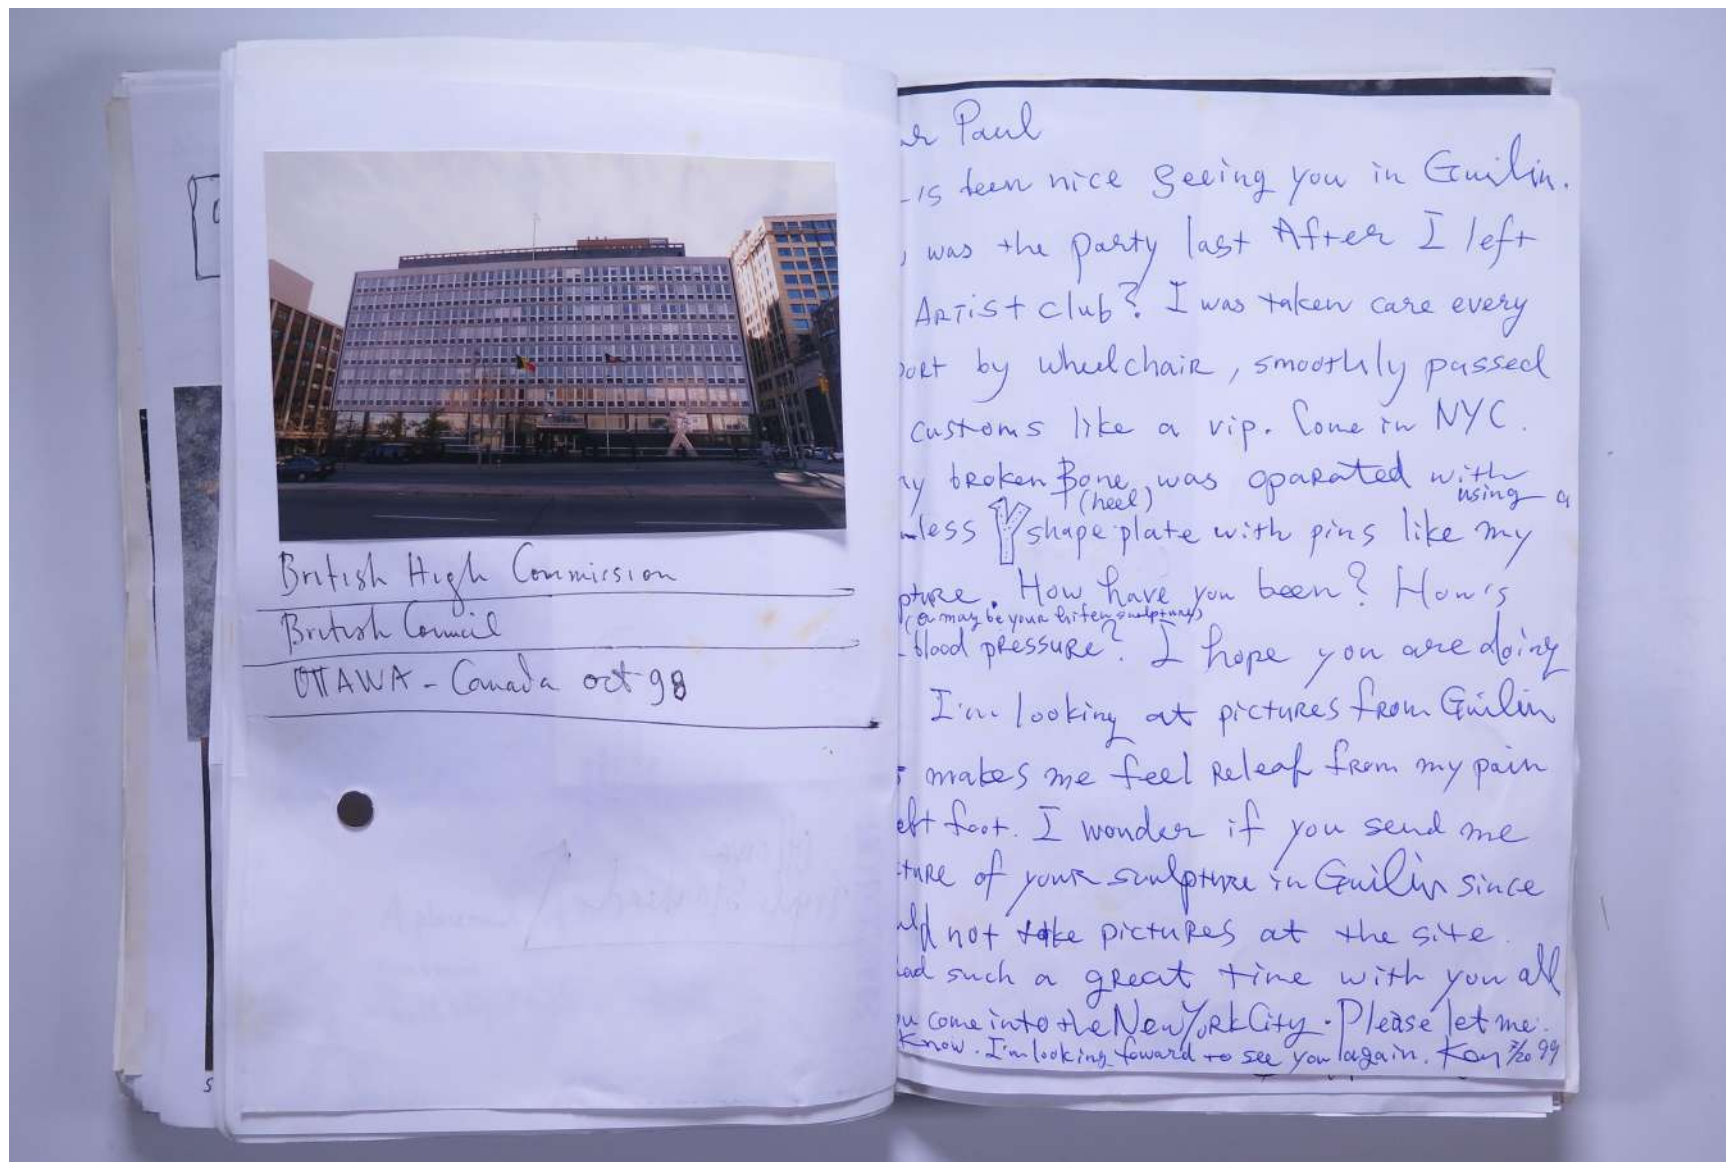 British High Commission
British Council
OTTAWA - Canada oct 98
Paul
is been nice seeing you in Guilin.
was the party last After I left
Artist club? I was taken care every
by wheelchair, smoothly passed
customs like a vip. Come in NYC.
broken Bone was oparated with
(heel)
using a
less Y shape plate with pins like my
How have you been? How's
(or may be your sculpture)
blood pressure? I hope you are doing
I'm looking at pictures from Guilin
makes me feel releaf from my pain
foot. I wonder if you send me
of your sculpture in Guilin since
not take pictures at the site.
such a great time with you all
come into the New York City. Please let me
know. I'm looking foward to see you again. Ken 7/20 99
S